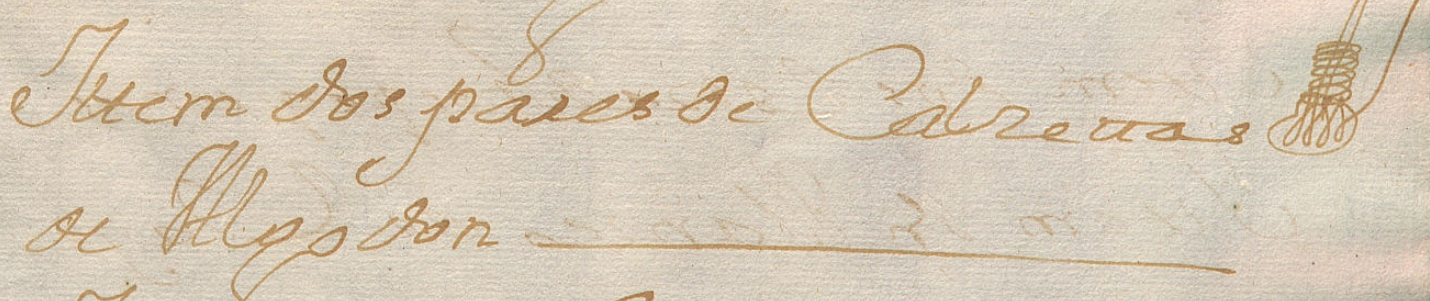 Ittem dos pares de Calzettas
de Algodon